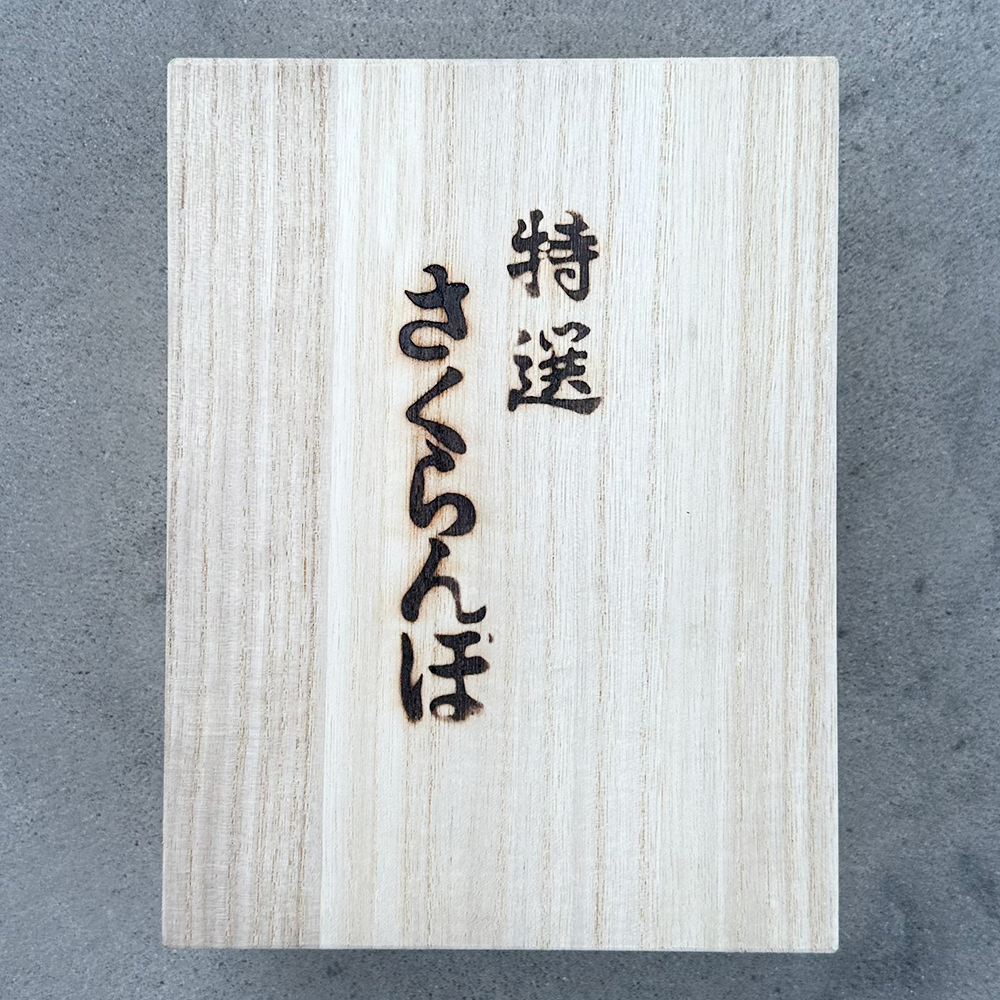 特選
さくらんぼ